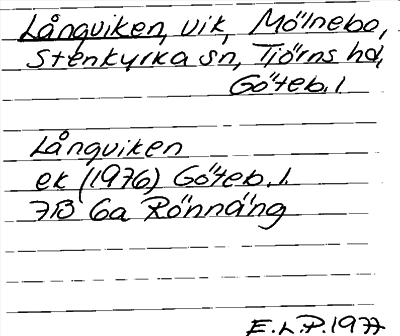 Långviken, vik, Mölnebo,
Stenkyrka sn, Tjörns hd,
Göteb. l
Långviken
ek (1976) Göteb. l.
7B 6a Rönnäng
E.L.P. 1977